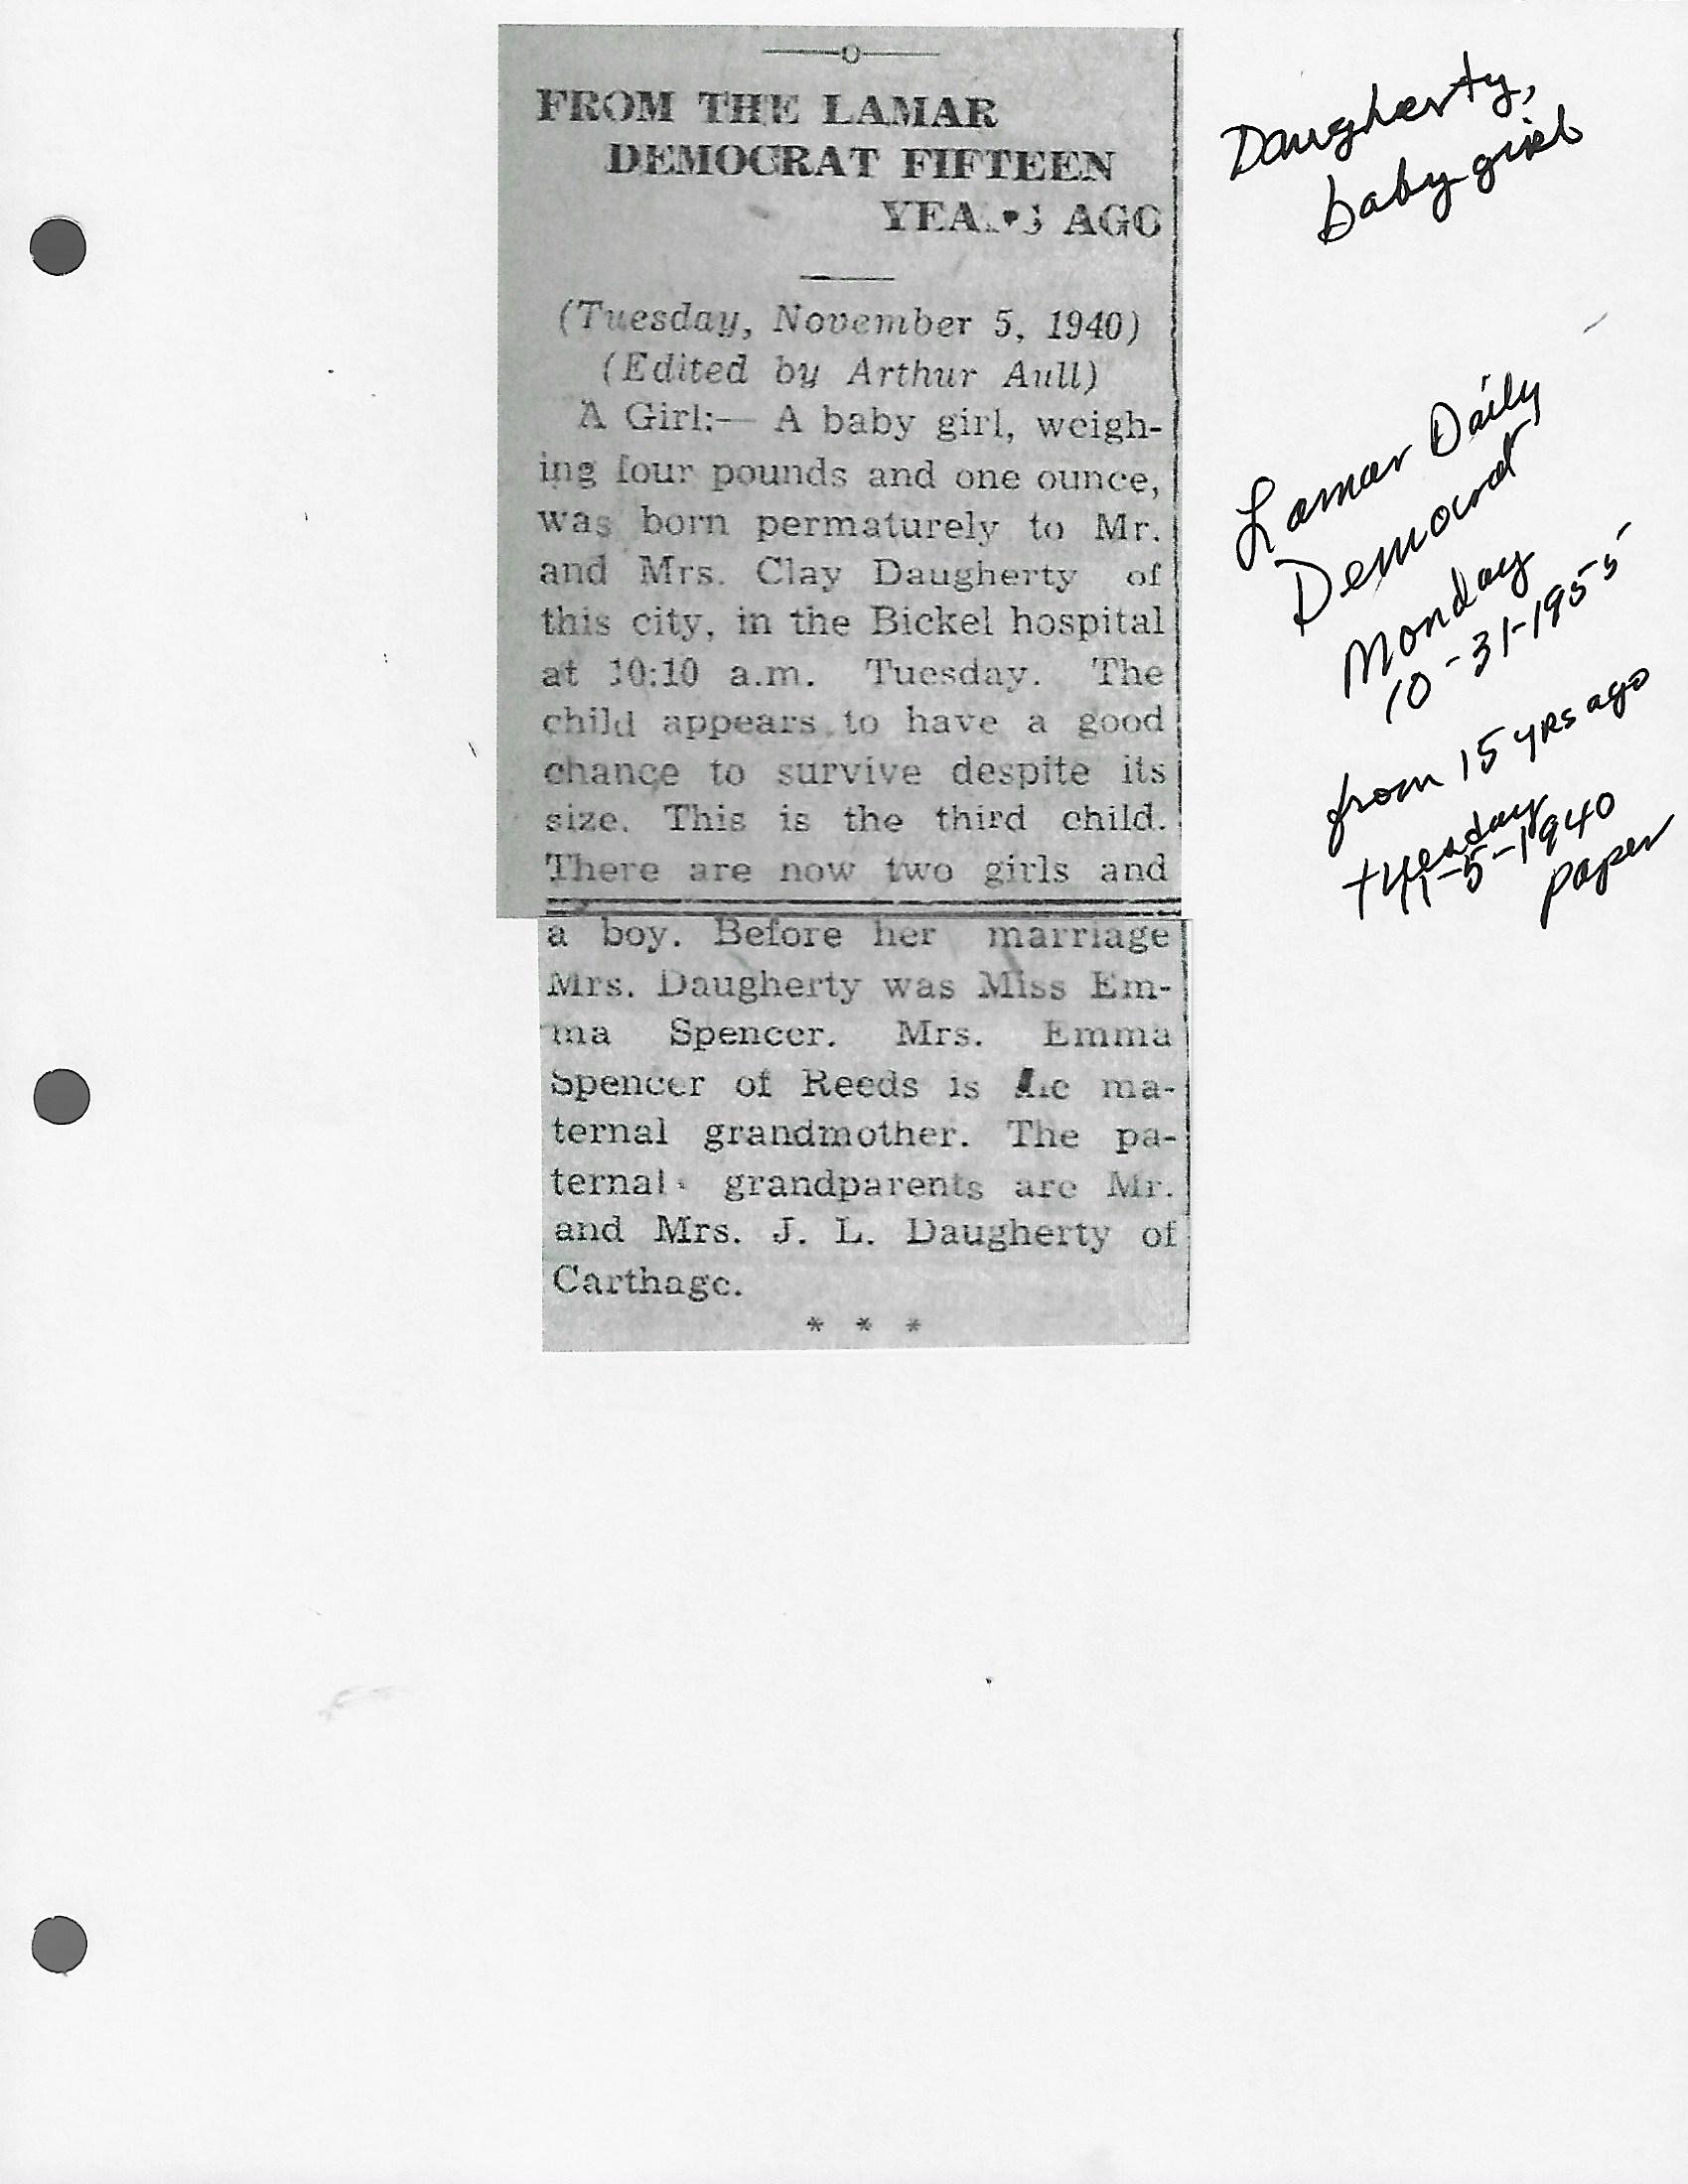 FROM THE LAMAR
DEMOCRAT FIFTEEN
AGO
(Tuesday, November 5, 1940)
(Edited by Arthur Aull)
A Girl:— A baby girl, weigh-
ing four pounds and one ounce,
was born permaturely to Mr.
and Mrs. Clay Daugherty of
this city, in the Bickel hospital
at 10:10 a.m. Tuesday. The
child appears to have a good
chance to survive despite its
size. This is the third child.
There are now two girls and
a boy. Before her marriage
Mrs. Daugherty was Miss Em-
ma Spencer. Mrs. Emma
Spencer of Reeds is the ma-
ternal grandmother. The pa-
ternal grandparents are Mr.
and Mrs. J. L. Daugherty of
Carthage.
* * *
Daugherty,
baby girl
Lamar Daily
Democrat
Monday
10-31-1955
from 15 yrs ago
tuesday
11-5-1940
paper